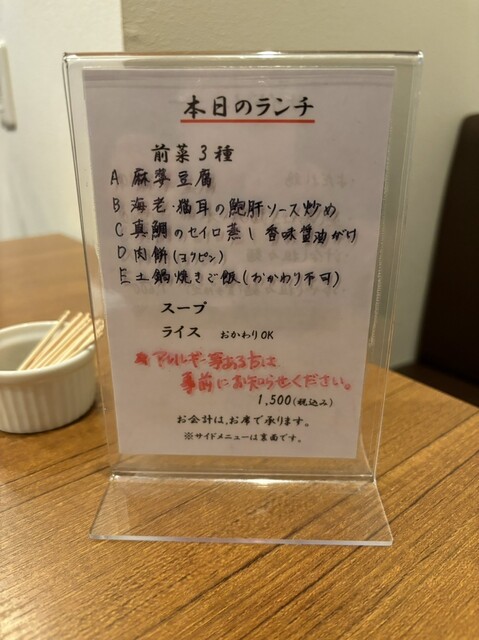 本日のランチ
前菜3種
A 麻婆豆腐
B 海老・猫耳の鮑肝ソース炒め
C 真鯛のセイロ蒸し 香味醤油がけ
D 肉餅(ヨウピン)
E 土鍋焼きご飯(おかわり不可)
スープ
ライス おかわりOK
アレルギー等ある方は、
事前にお知らせください。
1,500(税込み)
お会計は、お席で承ります。
※サイドメニューは裏面です。